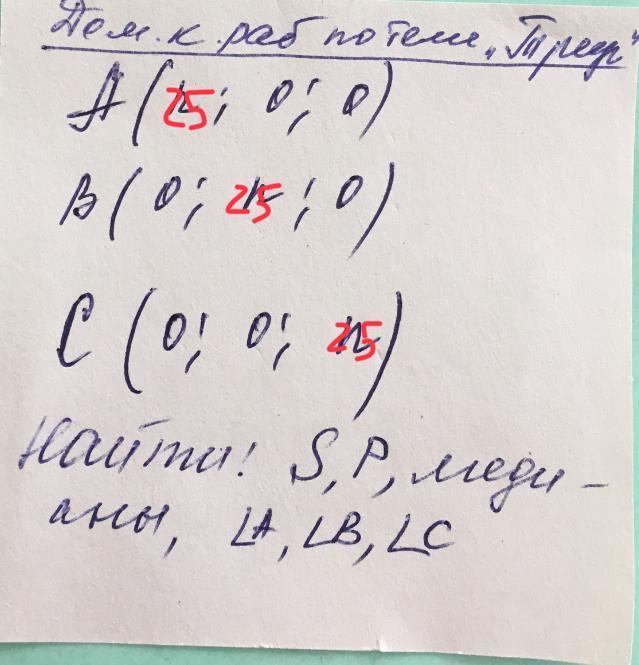 Дом. к. раб по теме „Треуг"
A (25; 0; 0)
B (0; 25; 0)
C (0; 0; 25)
Найти! S, P, меди-
аны, ∠A, ∠B, ∠C